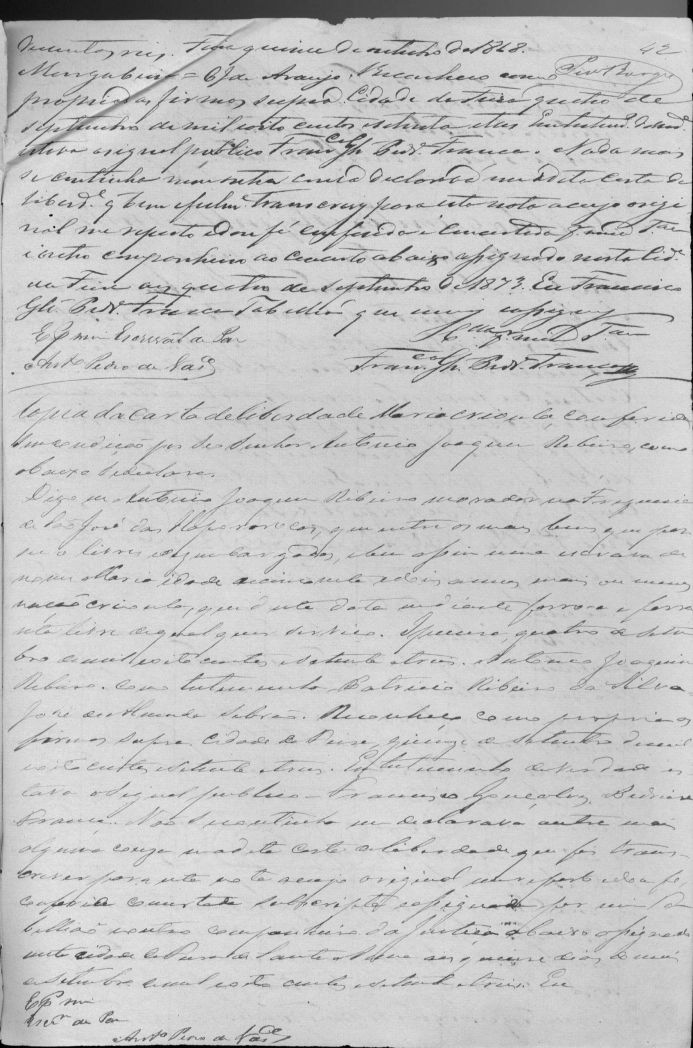 duzentos reis. Feira quinze de outubro de 1868. 42
Mongabeira = C. de Araujo. Reconheço como
proprias as firmas supra. Cidade da Feira quatro de
septembro de mil oito centos setenta e tres. Em testem.º de verd.e
estava o signal publico Fran.co Gls. Pedr.ª Franca. Nada mais
se continha nem outra cousa declarava na dita carta de
liberd.e q bem e fielm.e transcrevy para esta nota a cujo origi
nal me reporto e dou fé conferida e concertada
e outro companheiro ao concerto abaixo assignado nesta Cid.e
da Feira aos quatro de septembro de 1873. Eu Francisco
Gls. Pedr.ª Franca Tabellião que escrevy
E p. mim Escrivão de Paz
Ant.º Pedro de
Fran.co Gls. Pedr.ª Franca
Copia da carta de liberdade de Maria crioula, conferida
sem condição por seo Senhor Antonio Joaquim Ribeiro, como
abaixo se declara.
Digo eu Antonio Joaquim Ribeiro morador na Freguesia
de São José das Itapororocas, que entre os mais bens que pos
suo livres e desembargados, e bem assim uma escrava de
nome Maria idade cincoenta e seis annos mais ou menos
nação crioula, que d'esta data em diante forra e
livre de qualquer serviço. quatro de Setem
bro de mil oito centos e setenta e tres. Antonio Joaquim
Ribeiro. Como testemunha Patricio Ribeiro da Silva
José de Almeida Sobrão. Reconheço como proprias
firmas supra. Cidade da Feira quinze de Setembro de mil
oito centos e setenta e tres. Em testemunho de verdade es
tava o signal publico - Francisco Gonçalves Pedreira
Franca. Não se continha nem declarava outra mais
alguma couza na dita carta de liberdade que foi trans
crever para esta nota a cujo original me reporto e dou fé,
conferi concertei subscripto e assignado por mim Ta
bellião e outro companheiro da Justiça abaixo assignado
nesta cidade da Feira de Santa Anna aos quinze dias do mez
de Setembro de mil oito centos e setenta e tres. Eu
E p. mim
Escr.m de Paz
Ant.º Pedro de